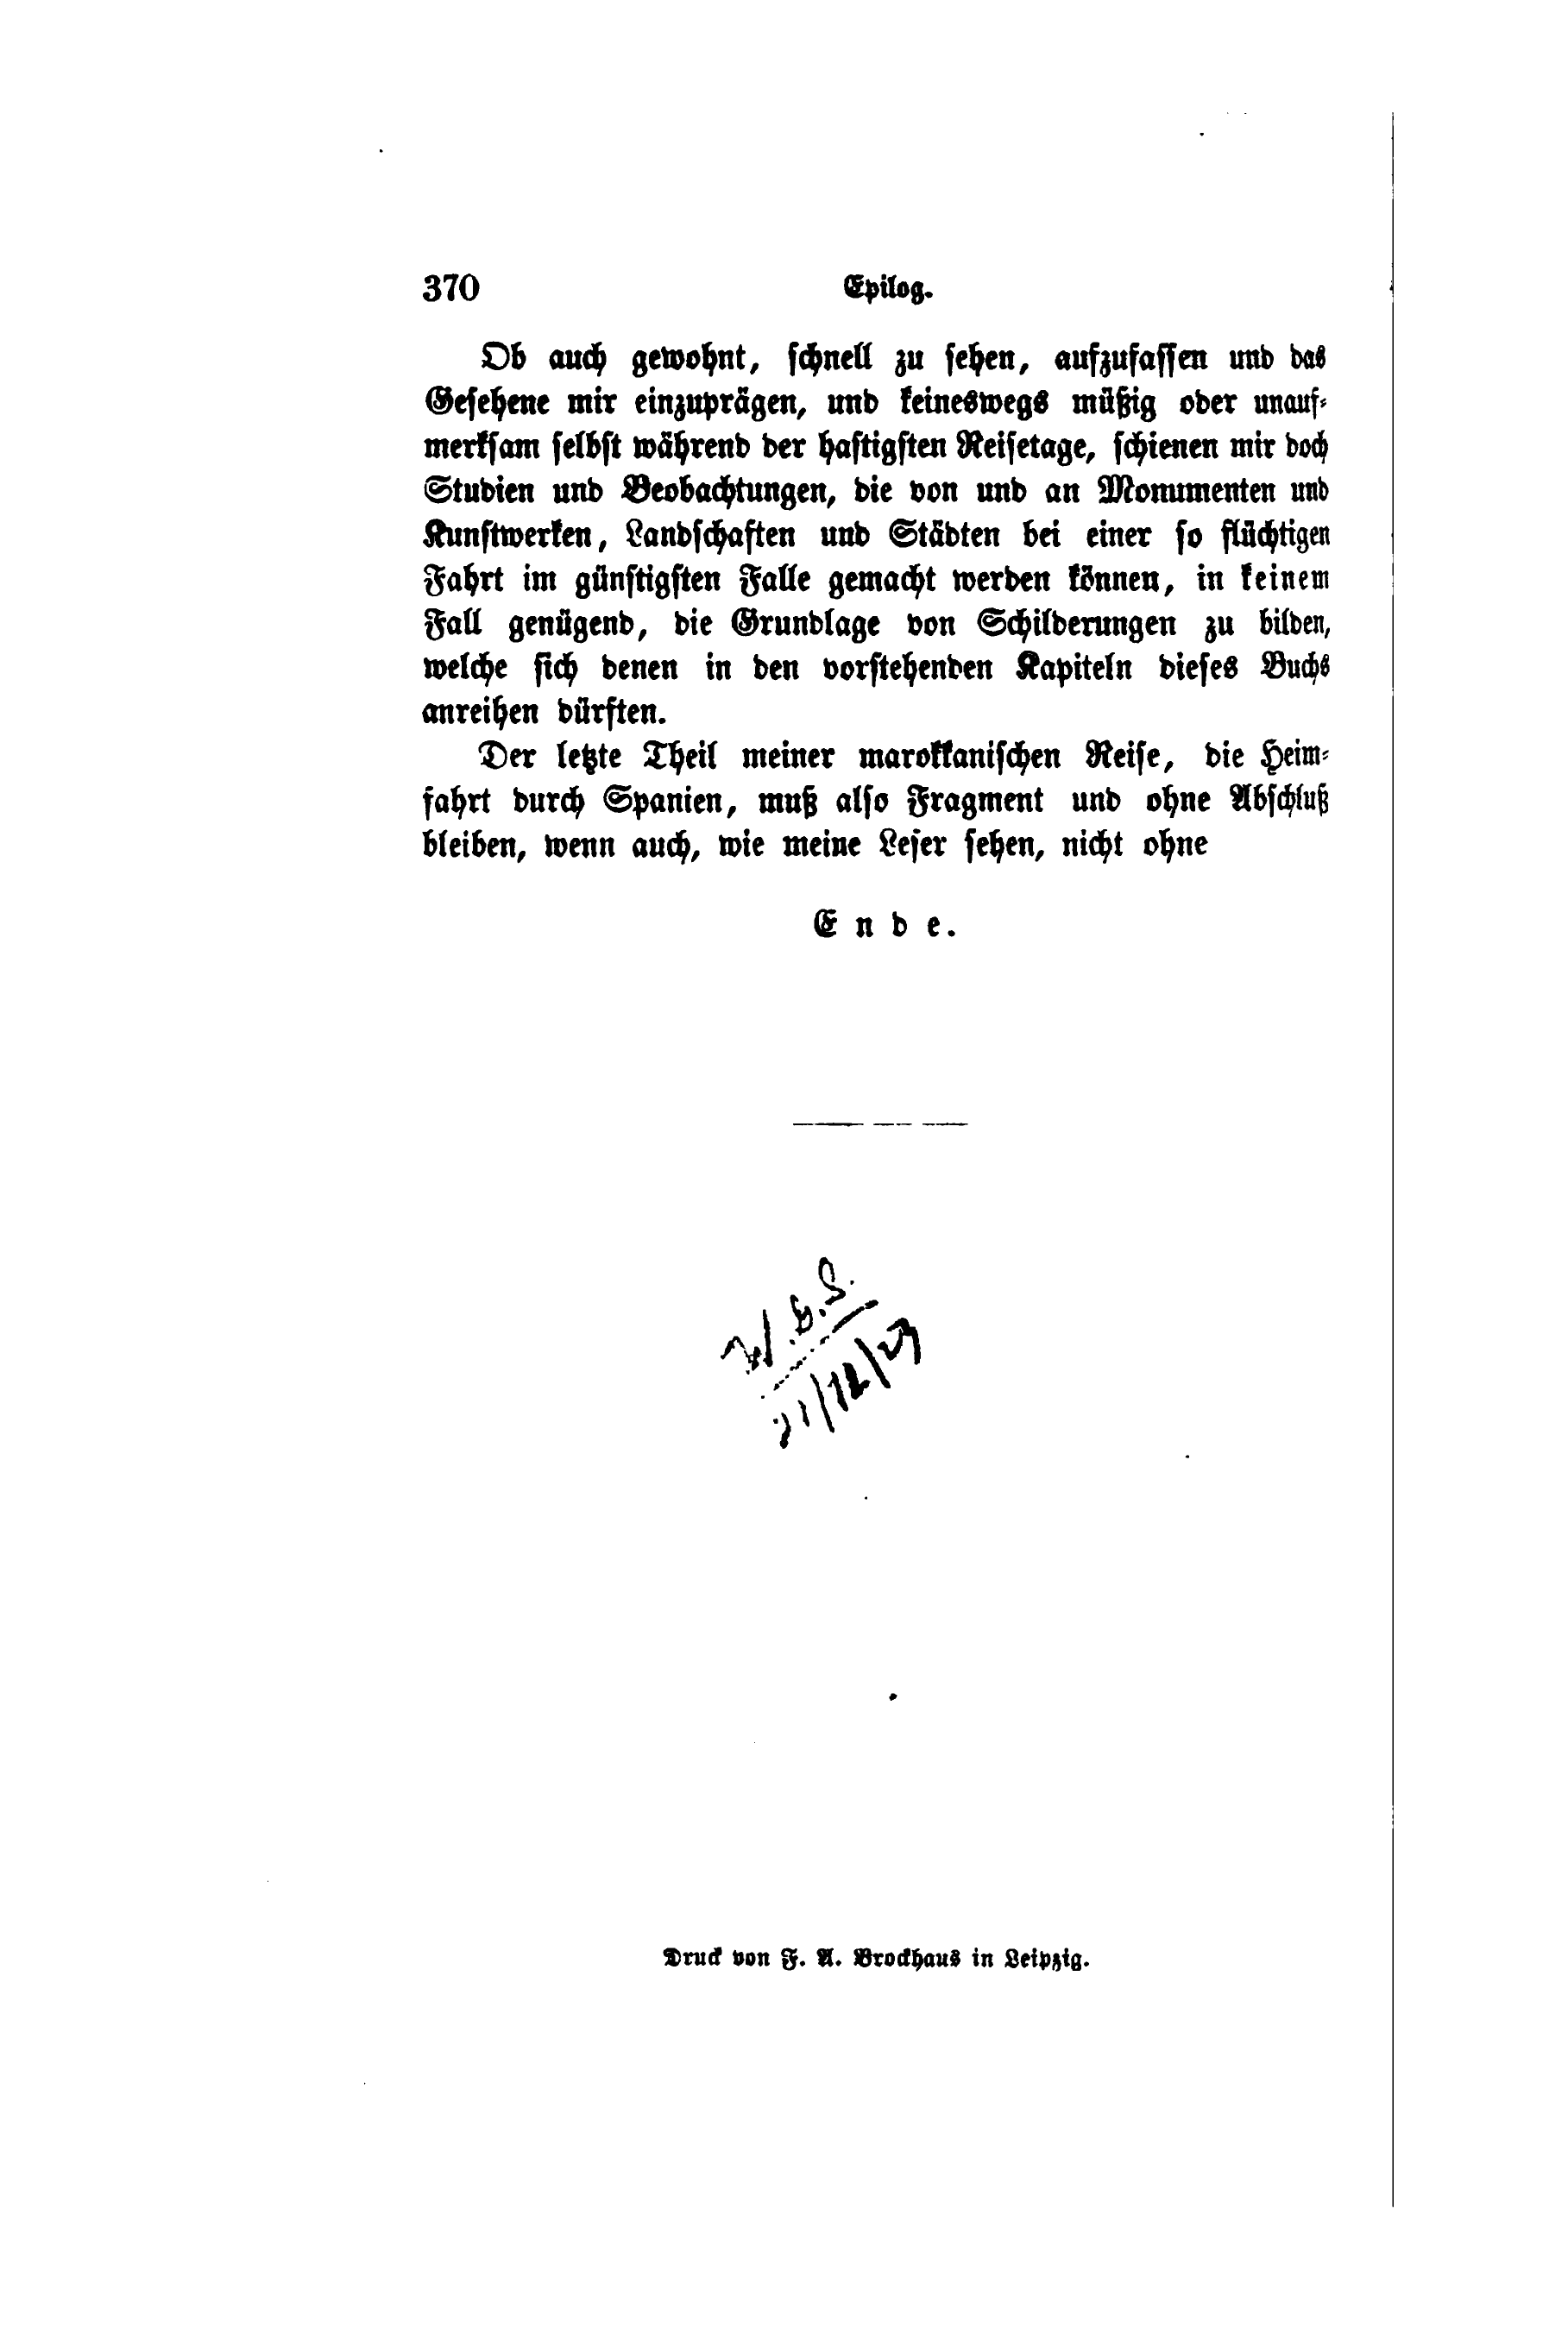 370 Epilog.
Ob auch gewohnt, schnell zu sehen, aufzufassen und das
Gesehene mir einzuprägen, und keineswegs müßig oder unauf-
merksam selbst während der hastigsten Reisetage, schienen mir doch
Studien und Beobachtungen, die von und an Monumenten und
Kunstwerken, Landschaften und Städten bei einer so flüchtigen
Fahrt im günstigsten Falle gemacht werden können, in keinem
Fall genügend, die Grundlage von Schilderungen zu bilden,
welche sich denen in den vorstehenden Kapiteln dieses Buchs
anreihen dürften.
Der letzte Theil meiner marokkanischen Reise, die Heim-
fahrt durch Spanien, muß also Fragment und ohne Abschluß
bleiben, wenn auch, wie meine Leser sehen, nicht ohne
Ende.
Druck von F. A. Brockhaus in Leipzig.